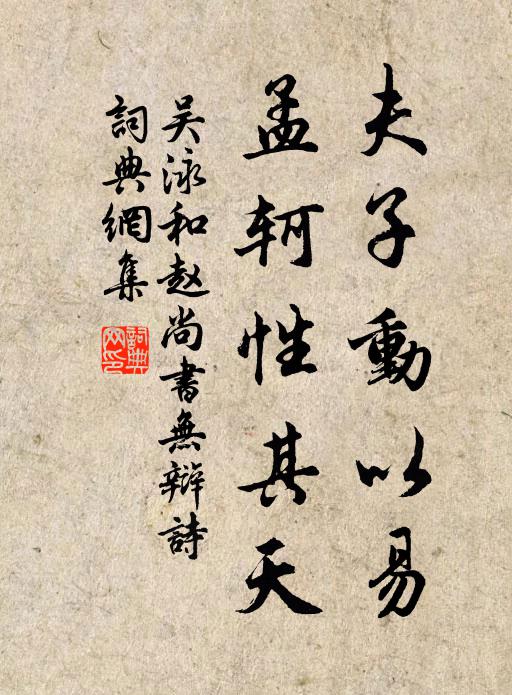 夫子動以易
孟軻性其天
吴泳和赵尚書無辯詩
詞典網集
詞典網印